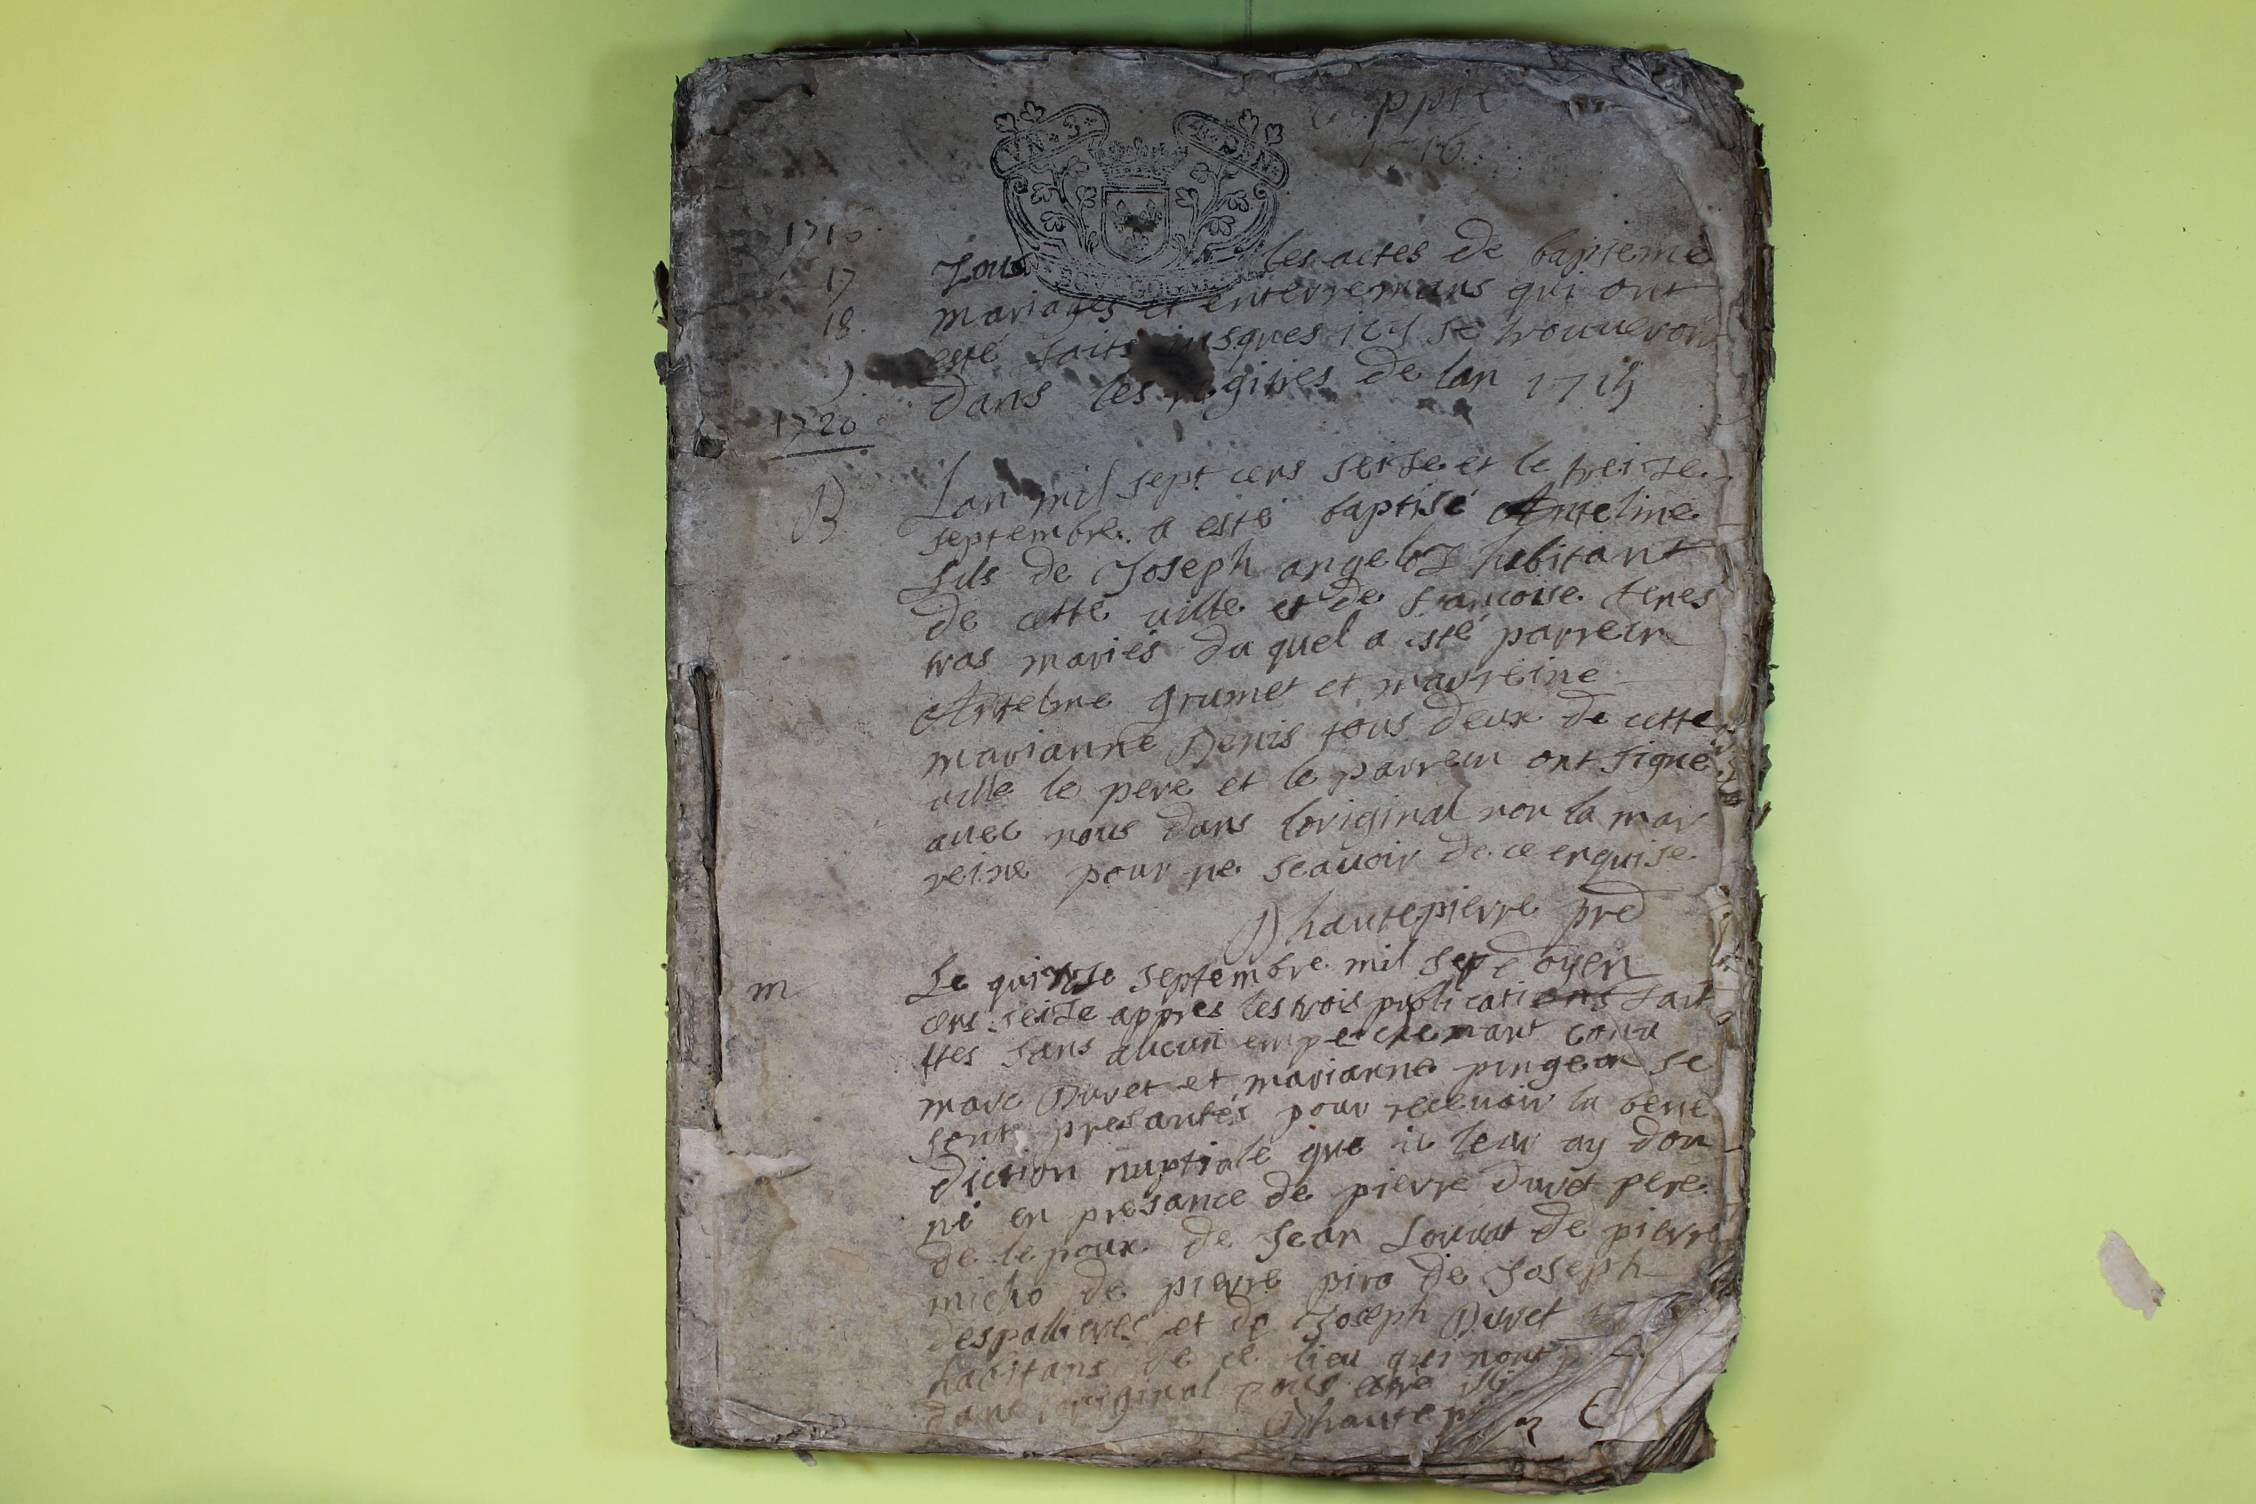 1716
VN · 3 · DEN
1716
17
18
1720
BOVRGOGNE
Tous les actes de bapteme
mariages et enterremans qui ont
esté faits jusques icy se trouveront
dans les regitres de lan 1715
B
Lan mil sept cens seise et le treise
septembre a esté baptisé Antelme
fils de Joseph angeloz habitant
de cette ville et de francoise
mariés du quel a esté parrein
Antelme grumet et marreine
marianne Denis tous deux de cette
ville le pere et le parrein ont signé
avec nous dans loriginal non la mar
reine pour ne scavoir de ce enquise
Dhautepierre pre
doyen
m
Le quinse septembre mil sept
cens seise appres les trois publications fait
ttes sans aucun empechemant entre
marc Duret et marianne pingeon se
sont presantés pour recevoir la bene
diction nuptiale que ie leur ay don
né en presance de pierre duret pere
de lepoux de Jean Louvat de pierre
micho de pierre piro de Joseph
et de Joseph Duret
habitans de ce lieu qui nont
dans loriginal pour
Dhautepi